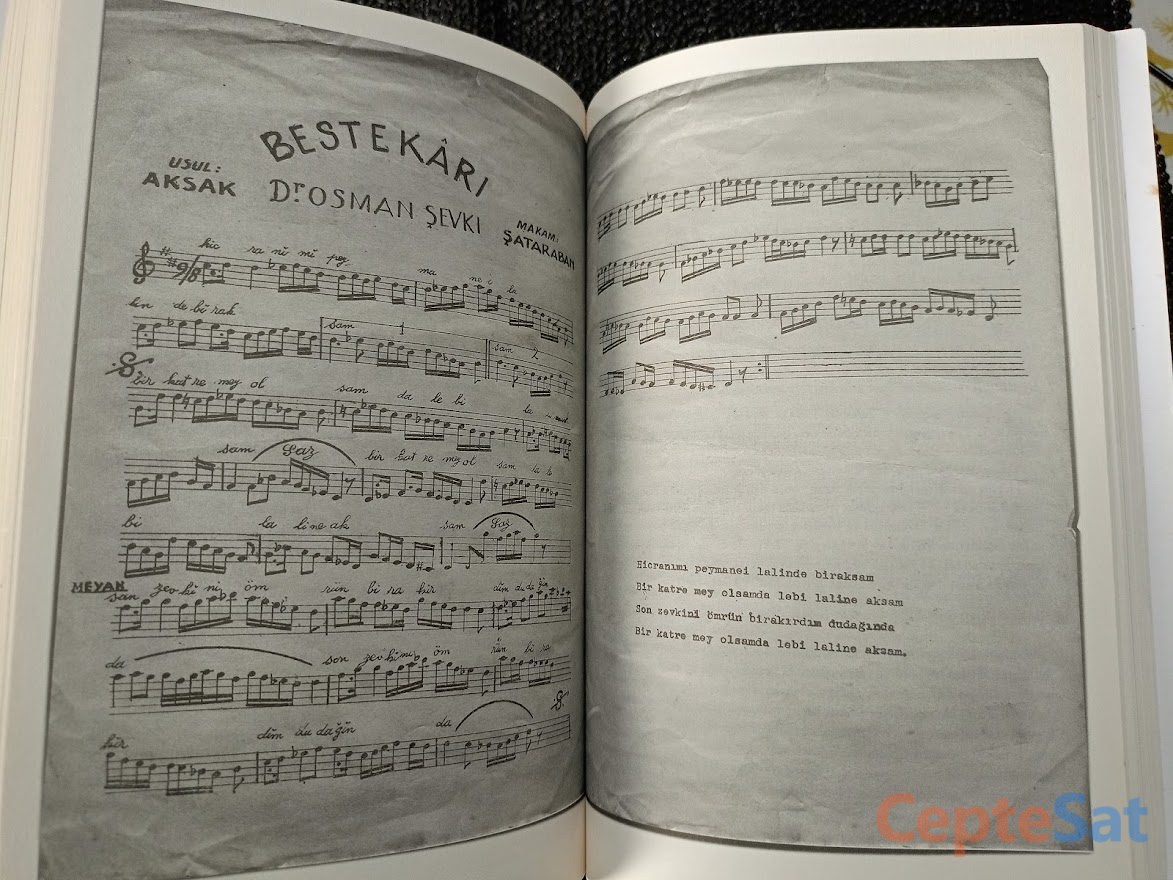 BESTEKÂRI
USUL:
AKSAK
Dr OSMAN ŞEVKI
MAKAM:
ŞATARABAN
9/8
hic ra ni mi pey ma ne i la
lin de bi rak sam 1 sam 2
bir kat re mey ol sam da le bi la
sam Saz bir kat re mey ol sam
bi la li ne ak sam Saz
MEYAN
son zev ki ni öm rün bi ra kır dım du da ğın
da son zev ki ni öm rün bi ra
kır dım du da ğın da
Hicranımı peymanei lalinde biraksam
Bir katre mey olsamda lebi laline aksam
Son zevkini ömrün birakırdım dudağında
Bir katre mey olsamda lebi laline aksam.
CepteSat